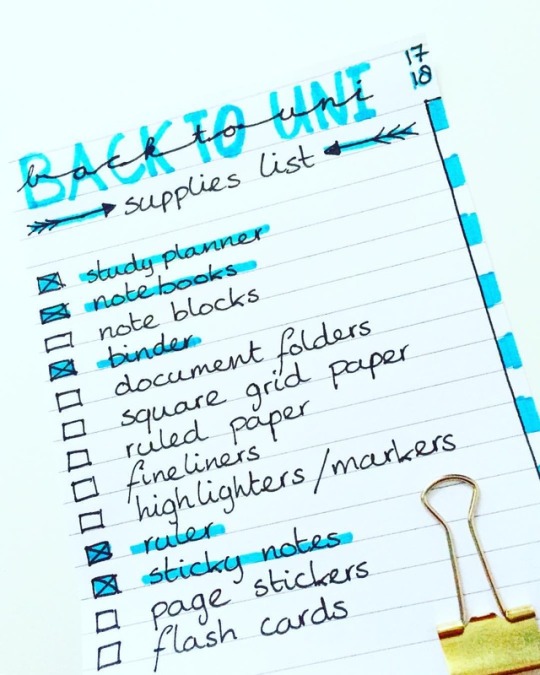 17
18
BACK TO UNI
back to uni
supplies list
study planner
notebooks
note blocks
binder
document folders
square grid paper
ruled paper
fineliners
highlighters/markers
ruler
sticky notes
page stickers
flash cards